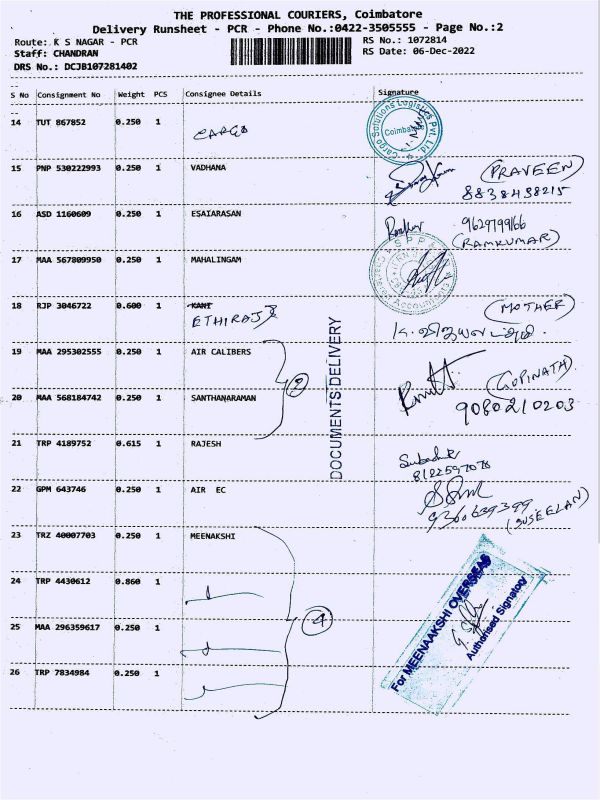 THE PROFESSIONAL COURIERS, Coimbatore
Delivery Runsheet - PCR - Phone No.:0422-3505555 - Page No.:2
Route: K S NAGAR - PCR
RS No.: 1072814
Staff: CHANDRAN
RS Date: 06-Dec-2022
DRS No.: DCJB107281402
S No Consignment No Weight PCS Consignee Details Signature
14 TUT 867852 0.250 1 CARGO
Cargo Solutions Logistics Pvt. Ltd
Coimbatore
15 PNP 530222993 0.250 1 VADHANA
(PRAVEEN)
8838438215
16 ASD 1160609 0.250 1 ESAIARASAN
Ramkumar 9629799166
(RAMKUMAR)
17 MAA 567809950 0.250 1 MAHALINGAM
18 RJP 3046722 0.600 1 KANT
ETHIRAJ
(MOTHER)
DOCUMENTS DELIVERY
19 MAA 295302555 0.250 1 AIR CALIBERS
2
(GOPINATH)
20 MAA 568184742 0.250 1 SANTHANARAMAN
9080210203
21 TRP 4189752 0.615 1 RAJESH
8122597078
22 GPM 643746 0.250 1 AIR EC
9360639399
(SUSEELAN)
23 TRZ 40007703 0.250 1 MEENAKSHI
24 TRP 4430612 0.860 1
4
For MEENAAKSHI OVERSEAS
Authorised Signatory
25 MAA 296359617 0.250 1
26 TRP 7834984 0.250 1